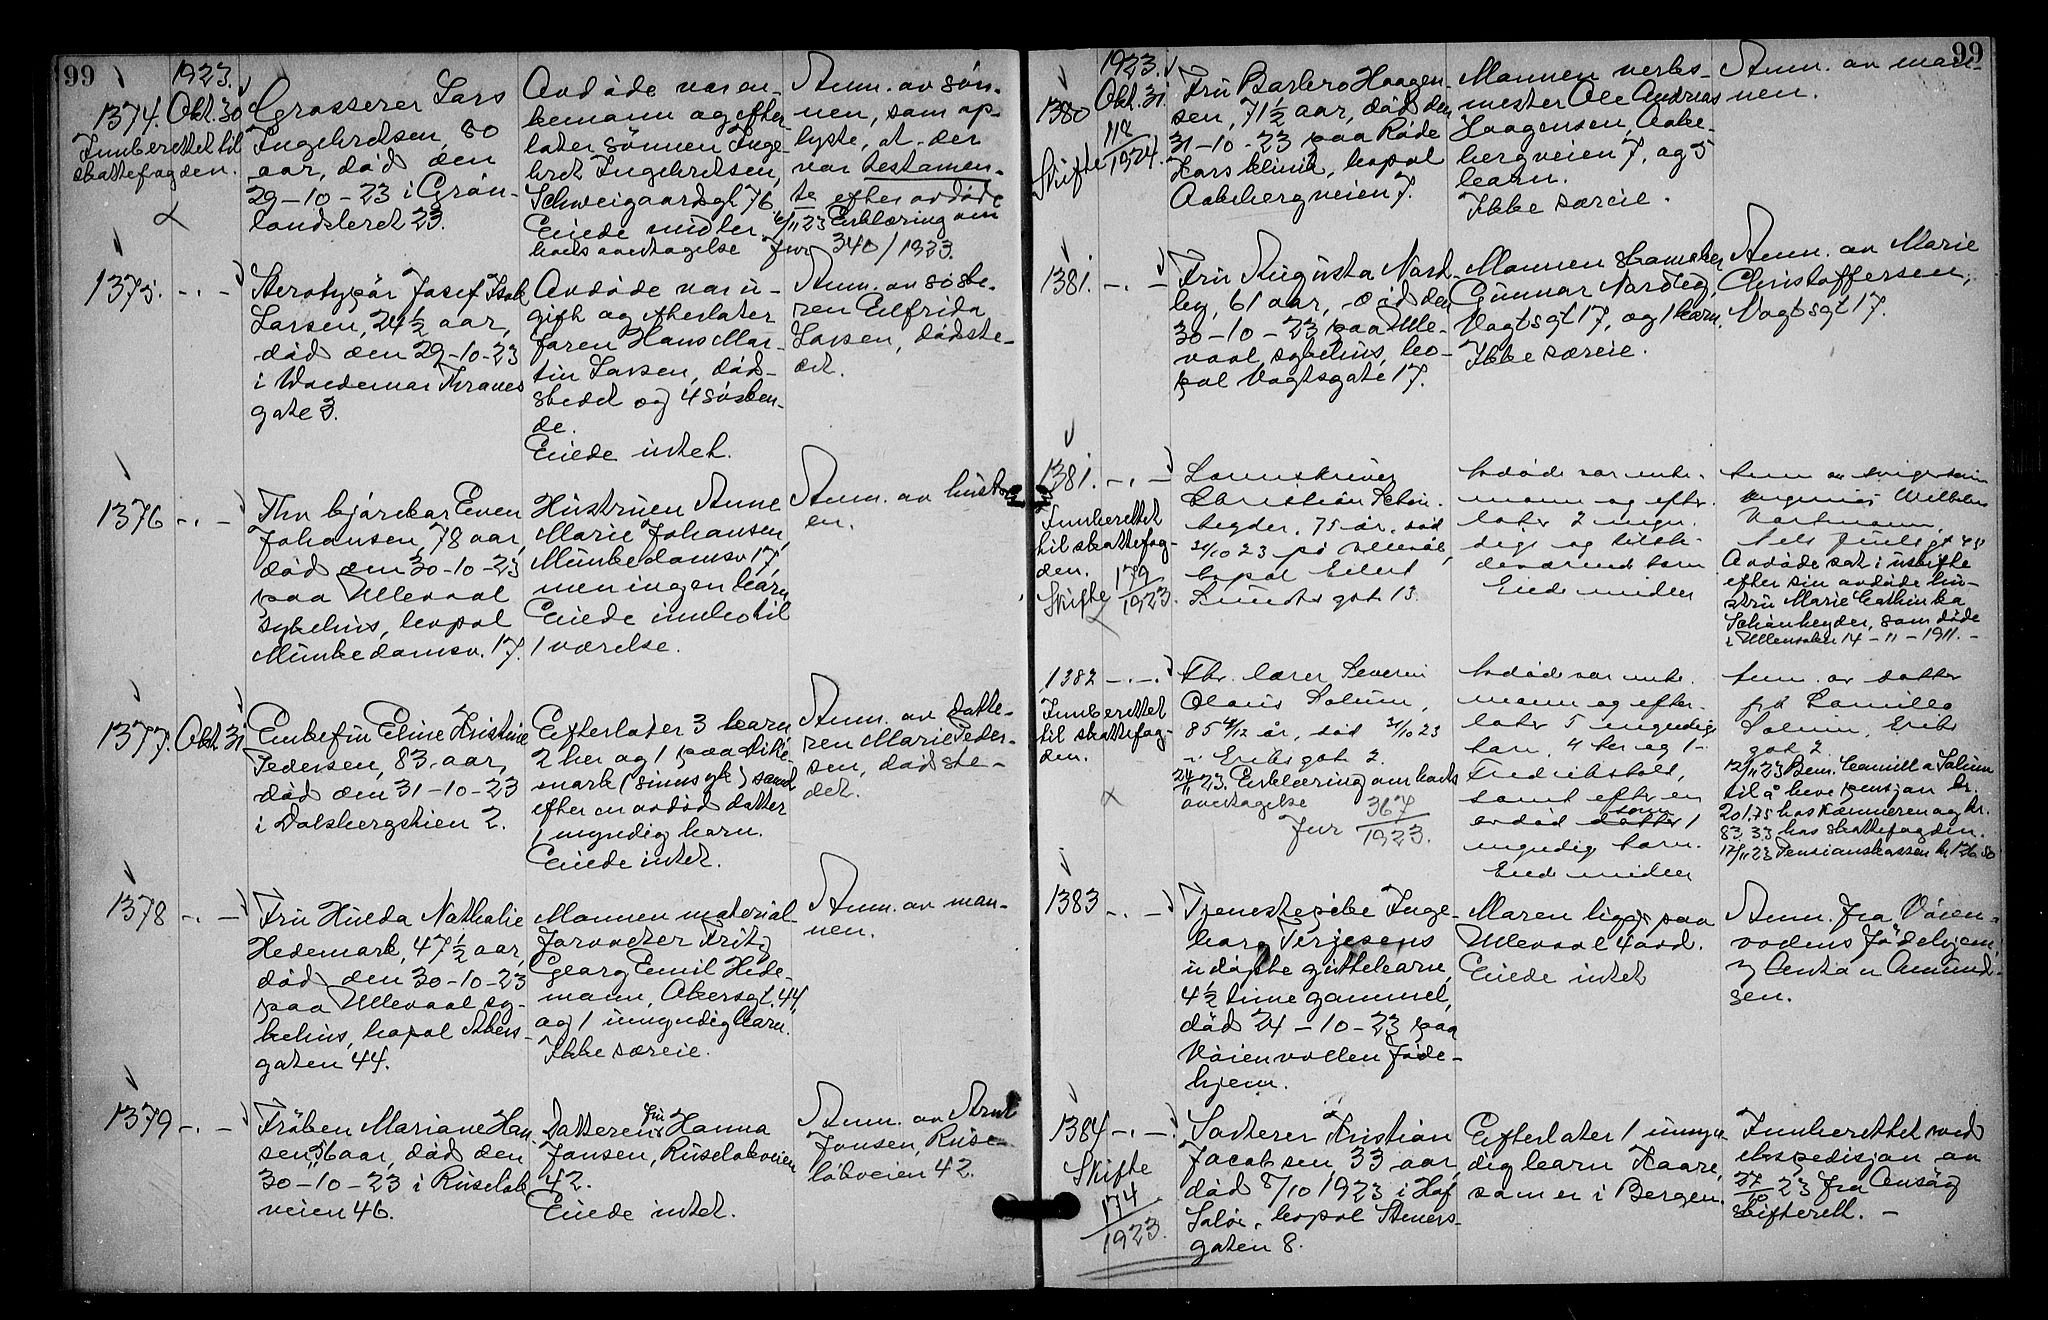 99
1923.
1374. Okt. 30
Innberettet til
skattefogden.
Grosserer Lars
Ingebretsen, 80
aar, död den
29-10-23 i Grön-
landsleret 23.
Avdöde var en-
kemann og efter-
later sönnen Inge-
bret Ingebretsen,
Schweigaardsgt 76
Eiede midler.
boets overtagelse
Anm. av sön-
nen, som op-
lyste, at der
var testamen-
te efter avdöde
6/11 23 Erklæring om
Jur 340/1923.
1375. -.-
Sterotypör Josef Isak
Larsen, 24½ aar,
död den 29-10-23
i Waldemar Thranes
gate 3.
Avdöde var u-
gift og efterlater
faren Hans Mar-
tin Larsen, död-
stedet og 4 sösken-
de.
Eiede intet.
Anm. av söste-
ren Elfrida
Larsen, dödste-
det.
1376 -.-
Fhv kjörekar Even
Johansen, 78 aar,
död den 30-10-23
paa Ullevaal
sykehus, bopæl
Munkedamsv. 17.
Hustruen Anne
Marie Johansen,
Munkedamsv 17,
men ingen barn
Eiede innbo til
1 værelse.
Anm. av hustru-
en.
1377. Okt. 31
Enkefru Eline Kristine
Pedersen, 83 aar,
död den 31-10-23
i Dalsbergstien 2.
Efterlater 3 barn
2 her og 1 paa Dike-
mark (sinnsyk) samt
efter en avdöd datter
1 myndig barn.
Eiede intet.
Anm. av datte-
ren Marie Peder-
sen, dödste-
det.
1378 -.-
Fru Hulda Nathalie
Hedemark, 47½ aar,
död den 30-10-23
paa Ullevaal sy-
kehus, bopæl Akers-
gaten 44.
Mannen material-
forvalter Fritz
Georg Emil Hede-
mann, Akersgt. 44,
og 1 umyndig barn.
Ikke særeie.
Anm. av man-
nen.
1379 -.-
Fröken Mariane Han-
sen, 56 aar, död den
30-10-23 i Ruselök
veien 46.
Datteren fru Hanna
Jansen, Ruselökveien
42.
Eiede intet.
Anm. av Arnt
Jansen, Ruse-
lökveien 42.
99
1923.
1380 Okt. 31
Skifte 118/1924.
Fru Barbro Haagen-
sen, 71½ aar, död den
31-10-23 paa Röde
Kors klinik, bopæl
Aakebergveien 7.
Mannen verks-
mester Ole Andreas
Haagensen, Aake-
bergveien 7, og 5
barn.
Ikke særeie.
Anm. av man-
nen.
1381. -.-
Fru Augusta Nord-
by, 61 aar, död den
30-10-23 paa Ulle-
vaal sykehus, bo-
pæl Vogtsgate 17.
Mannen skomaker
Gunnar Nordby,
Vogtsgt 17, og 1 barn.
Ikke særeie.
Anm. av Marie
Christoffersen,
Vogtsgt 17.
1381. -.-
Innberettet
til skattefog-
den.
Skifte 179/1923.
Christian Schön-
heyder, 75 år, död
31/10 23 på Ullevål,
bopæl Eilert
Sundts gat. 13
Avdöde var enke-
mann og efter-
later 2 myn-
dige og tilste-
deværende barn
Eiede midler
Anm. av svigersönn
Wilhelm
Nils Juels gt 45
Avdöde sat i uskifte
efter sin avdöde hu-
stru Marie Cathinka
Schönheyder, som döde
i Ullensaker 14-11-1911.-
1382 -.-.
Innberettet
til skattefog-
den.
Fhv. lærer Severin
Olaus Solum,
85 4/12 år, död 31/10 23
i Eriks gat. 2.
24/11 23. Erklæring om boets
overtagelse
Jur 367/1923.
Avdöde var enke-
mann og efter-
later 5 myndige
barn, 4 her og 1 -
Fredrikshald,
samt efter en
avdöd datter sönn 1
myndig barn.
Eiede midler
Anm. av datter
frk Camilla
Solum, Eriks
gat 2
12/11 23 Bem. Camilla Solum
til å heve pensjon kr.
201.75 hos kæmneren og kr.
83,33 hos skattefogden.
17/11 23 Pensionskassen kr 126.50
1383 -.-
Tjenestepike Inge-
borg Terjesens
udöpte guttebarn,
4½ time gammel,
död 24-10-23 paa
Vöienvollen föde-
hjem.
Moren ligger paa
Ullevaal 4 avd.
Eiede intet
Anm. fra Vöien-
vollens födehjem
v Anton Amund-
sen.
1384 -.-.
Skifte
174/1923.
Sorterer Kristian
Jacobsen, 33 aar,
död 8/10 1923 i Haf
Salöi, bopæl Steners-
gaten 8.
Efterlater 1 umyn-
dig barn Kaare,
som er i Bergen.
Innberettet ved
ekspedisjon av
27/10 23 fra
skifterett. -